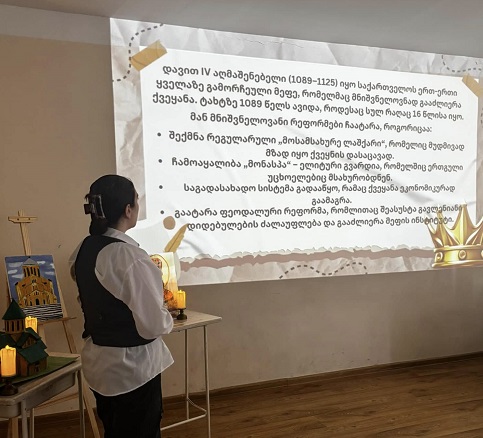 დავით IV აღმაშენებელი (1089–1125) იყო საქართველოს ერთ-ერთი
ყველაზე გამორჩეული მეფე, რომელმაც მნიშვნელოვნად გააძლიერა
ქვეყანა. ტახტზე 1089 წელს ავიდა, როდესაც სულ რაღაც 16 წლისა იყო.
მან მნიშვნელოვანი რეფორმები ჩაატარა, როგორიცაა:
• შექმნა რეგულარული „მოსამსახურე ლაშქარი“, რომელიც მუდმივად
მზად იყო ქვეყნის დასაცავად.
• ჩამოაყალიბა „მონასპა“ – ელიტური გვარდია, რომელშიც ერთგული
უცხოელებიც მსახურობდნენ.
• საგადასახადო სისტემა გადააწყო, რამაც ქვეყანა ეკონომიკურად
გაამაგრა.
• გაატარა ფეოდალური რეფორმა, რომლითაც შეასუსტა გავლენიანი
დიდებულების ძალაუფლება და გააძლიერა მეფის ინსტიტუტი.